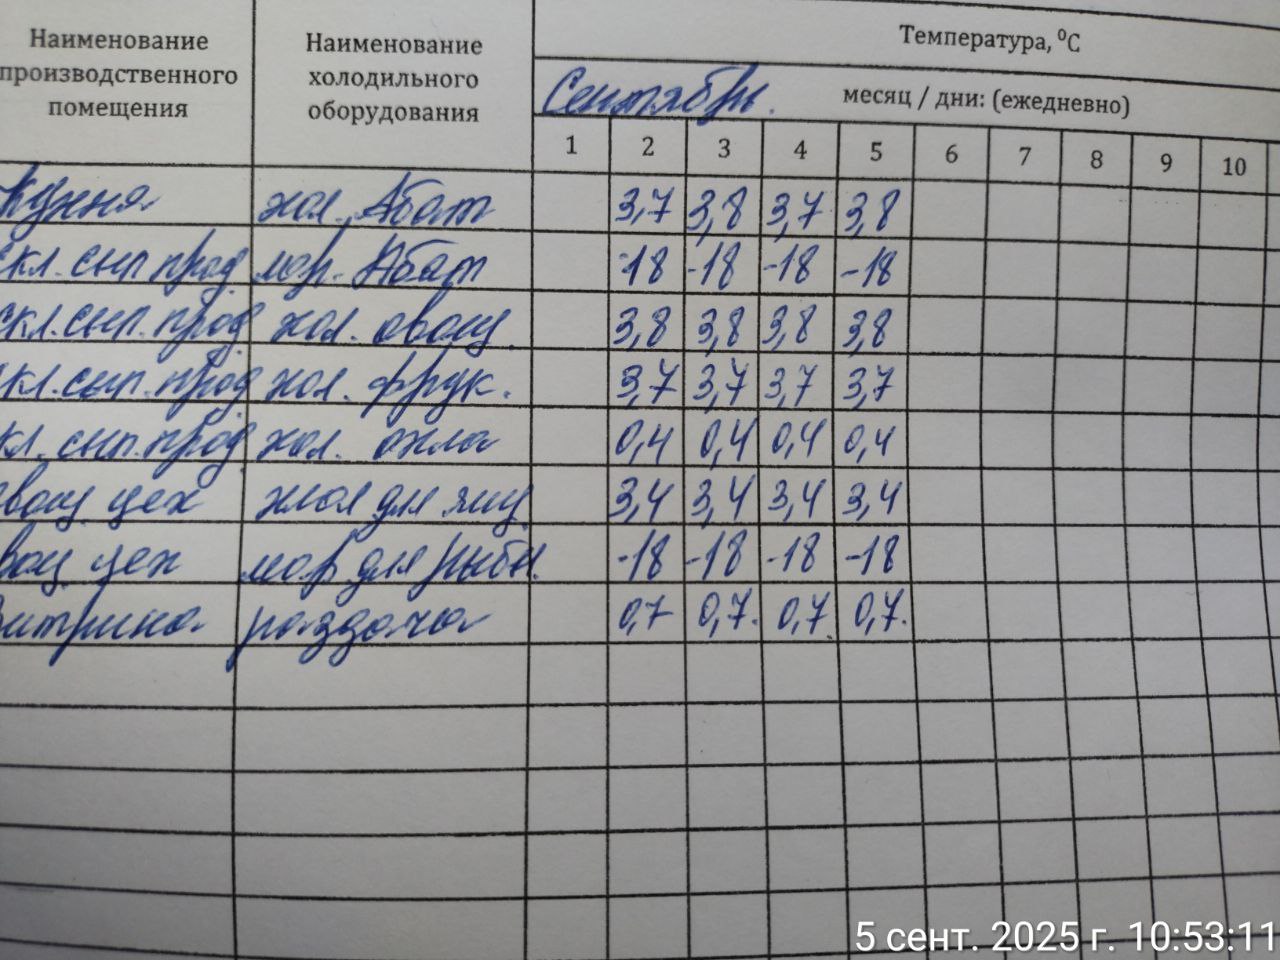 Наименование производственного помещения
Наименование холодильного оборудования
Температура, °С
Сентябрь. месяц / дни: (ежедневно)
1 2 3 4 5 6 7 8 9 10
Кухня хол. Абат 3,7 3,8 3,7 3,8
скл. сып прод мор. Абат -18 -18 -18 -18
скл. сып. прод хол. овощ. 3,8 3,8 3,8 3,8
скл. сып. прод хол. фрук. 3,7 3,7 3,7 3,7
кл. сып. прод хол. охла 0,4 0,4 0,4 0,4
вощ цех хол для яиц 3,4 3,4 3,4 3,4
вощ цех мор для рыбы. -18 -18 -18 -18
витрина раздача 0,7 0,7. 0,7. 0,7.
5 сент. 2025 г. 10:53:11